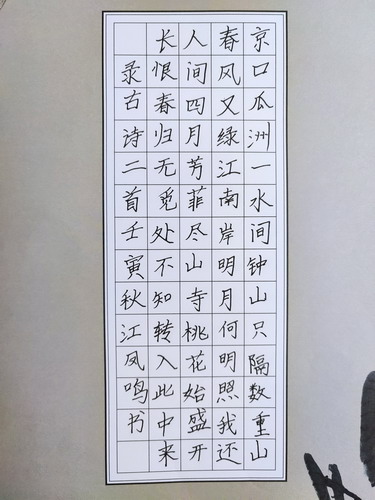 京口瓜洲一水间钟山只隔数重山
春风又绿江南岸明月何明照我还
人间四月芳菲尽山寺桃花始盛开
长恨春归无觅处不知转入此中来
录古诗二首壬寅秋江凤鸣书